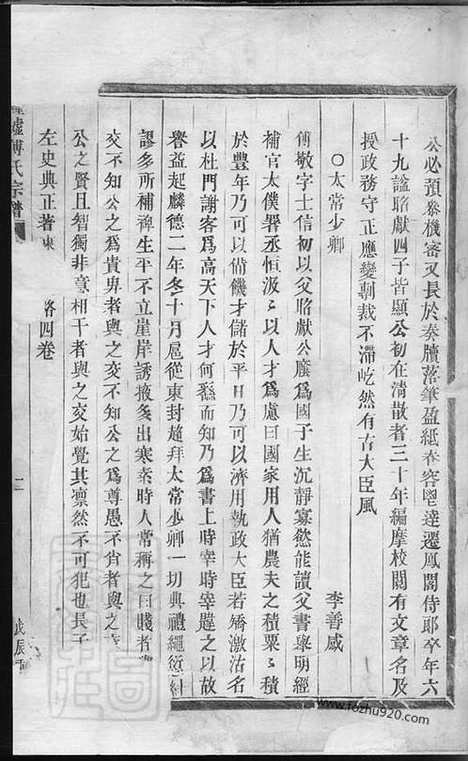 公必預參機密又長於奏牘落筆盈紙春容
達遷鳳閣侍郎卒年六
十九諡昭獻四子皆顯公初在清散者三十年編摩校閱有文章名及
授政務守正應變剸裁不滯屹然有古大臣風
○太常少卿 李善感
傅敬字士信初以父昭獻公廕爲國子生沉靜寡慾能讀父書舉明經
補官太僕署丞恒汲汲以人才爲慮曰國家用人猶農夫之積粟粟積
於豐年乃可以備饑才儲於平日乃可以濟用執政大臣若矯激沽名
以杜門謝客爲高天下人才何繇而知乃爲書上時宰時宰韙之以故
譽益起麟德二年冬十月扈從東封超拜太常少卿一切典禮繩愆糾
謬多所補裨生平不立崖岸誘掖多出寒素時人常稱之曰賤者
交不知公之爲貴卑者與之交不知公之爲尊愚不肖者與之
公之賢且智獨非意相干者與之交始覺其凜然不可犯也長子
左史典正著東 畧四卷
墟傅氏宗譜
二
戊辰
www.fozhu920.com